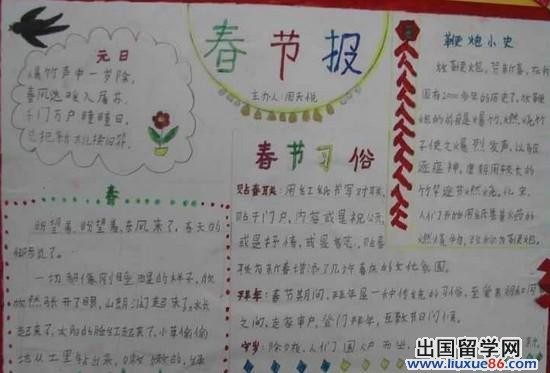 元日
爆竹声中一岁除,
春风送暖入屠苏。
千门万户曈曈日,
总把新桃换旧符。
春节报
主办人:周天悦
鞭炮小史
放鞭炮,贺新春,在我
国有2000多年的历史了。放鞭炮
的前身是爆竹,燃烧竹
子使之爆烈发声,以驱
逐瘟神。
竹竿逐节燃烧。
人们开始用
春节习俗
贴春联:用红纸书写对联,
贴于门户,内容或是祝
或是抒情,或是
为新春增添了几许喜庆的文化氛围。
拜年:春节期间,拜年是一种传统的习俗,
之间,走家串户,登门拜年,互致节日问候。
守岁:除夕夜,人们
春
盼望着,盼望着,东风来了,春天的
脚步近了。
一切都像刚睡醒的样子,欣
欣然张开了眼,山朗润起来了,水长
起来了,太阳的脸红起来了。小草偷偷
地从土里钻出来,嫩嫩的,绿
出国留学网
www.liuxue86.com